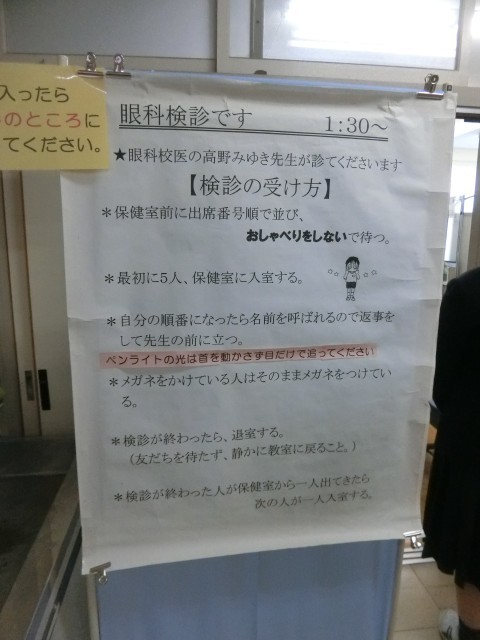 入ったら
のところに
てください。
眼科検診です 1:30～
★眼科校医の高野みゆき先生が診てくださいます
【検診の受け方】
＊保健室前に出席番号順で並び、
おしゃべりをしないで待つ。
＊最初に5人、保健室に入室する。
＊自分の順番になったら名前を呼ばれるので返事を
して先生の前に立つ。
ペンライトの光は首を動かさず目だけで追ってください
＊メガネをかけている人はそのままメガネをつけてい
る。
＊検診が終わったら、退室する。
（友だちを待たず、静かに教室に戻ること。）
＊検診が終わった人が保健室から一人出てきたら
次の人が一人入室する。